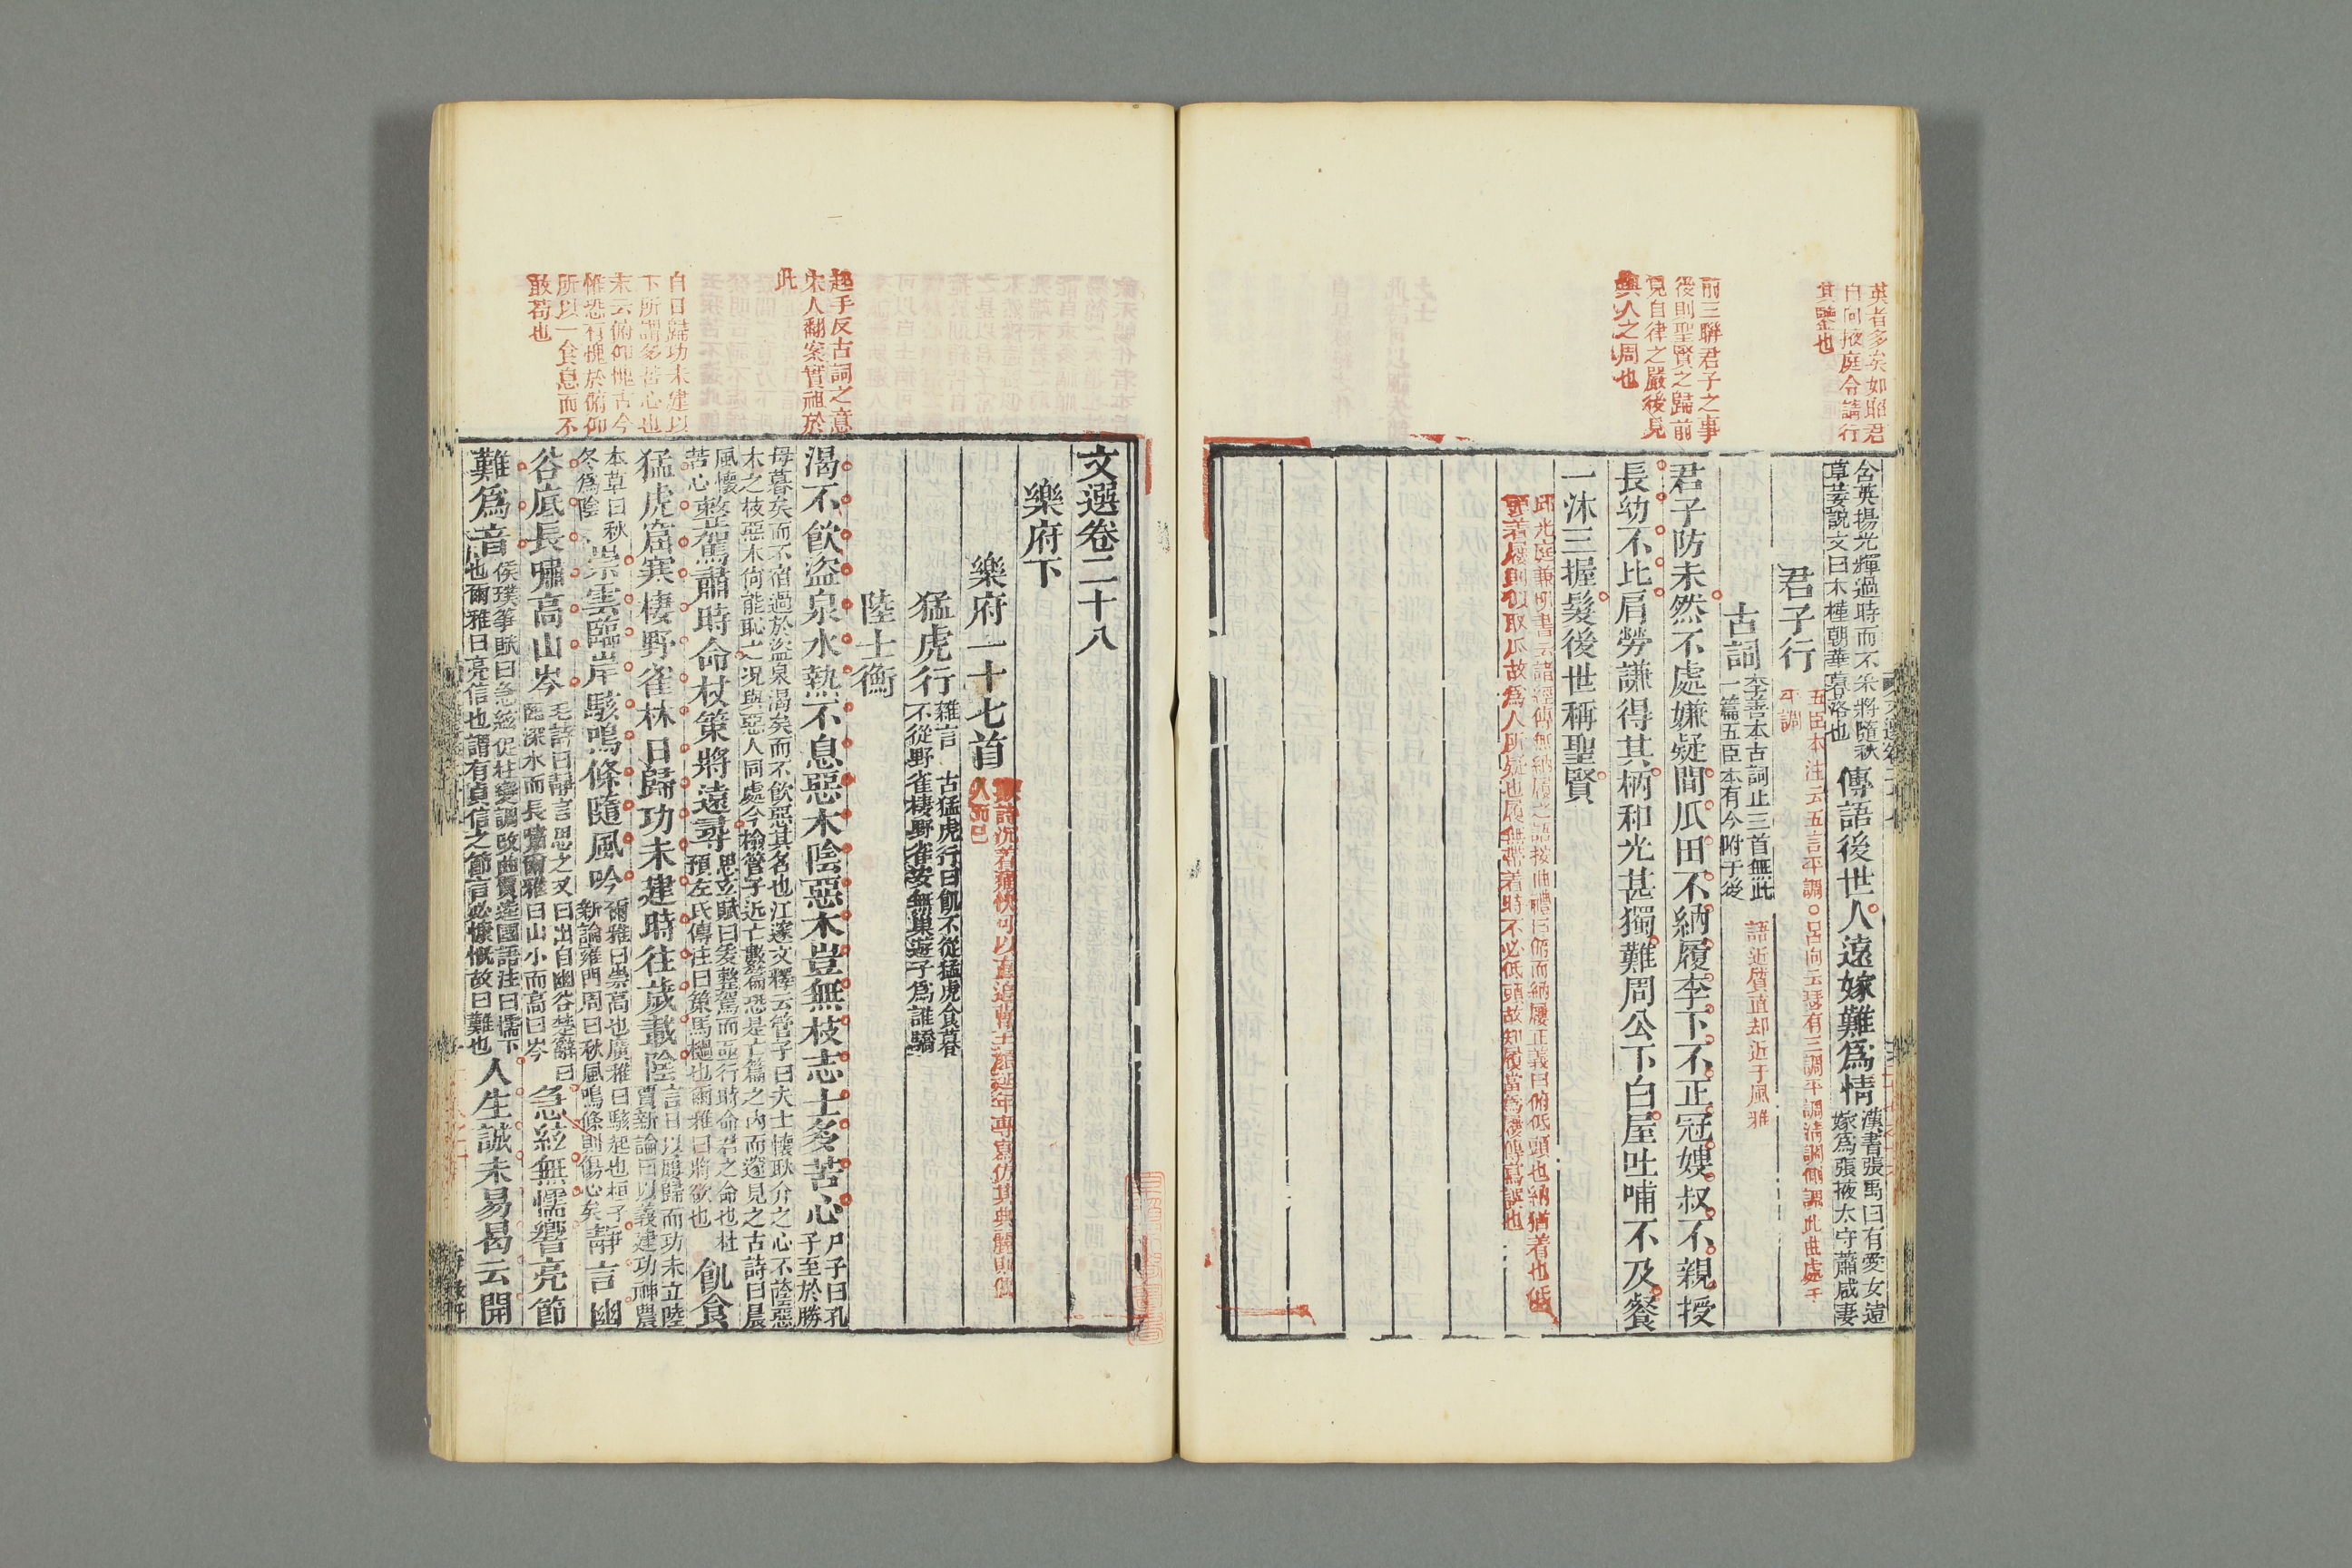 英者多矣如昭君
自向掖庭令請行
其鑒也
前三聯君子之事
後則聖賢之歸前
見自律之嚴後見
與人之周也
含英揚光輝過時而不采將隨秋
草萎說文曰木槿朝華暮落也
傳語後世人遠嫁難為情
漢書張禹曰有愛女遠
嫁為張掖太守蕭咸妻
君子行
五臣本注云五言平調○呂向云瑟有三調平調清調側調此曲處于
平調
古詞
李善本古詞止三首無此
一篇五臣本有今附于後
語近質直却近于風雅
君子防未然不處嫌疑間瓜田不納履李下不正冠嫂叔不親授
長幼不比肩勞謙得其柄和光甚獨難周公下白屋吐哺不及餐
一沐三握髮後世稱聖賢
邱光庭兼明書云諸經傳無納履之語按曲禮曰俯而納屨正義曰俯低頭也納猶着也低
頭着屨則似取瓜故為人所疑也履無帶着時不必低頭故知履當為屨傳寫誤也
起手反古詞之意
宋人翻案實祖於
此
自日歸功未建以
下所謂多苦心也
末云俯仰愧古今
惟恐有愧於俯仰
所以一食息而不
敢苟也
文選卷二十八
樂府下
樂府一十七首
詩沉着痛快可以直追曹王顏延年專寫仿其典麗則偶
人而已
猛虎行
雜言 古猛虎行曰飢不從猛虎食暮
不從野雀棲野雀安無巢遊子為誰驕
陸士衡
渴不飲盜泉水熱不息惡木陰惡木豈無枝志士多苦心
尸子曰孔
子至於勝
母暮矣而不宿過於盜泉渴矣而不飲惡其名也江邃文釋云管子曰夫士懷耿介之心不蔭惡
木之枝惡木尚能恥之況與惡人同處今檢管子近亡數篇恐是亡篇之內而邃見之古詩曰晨
風懷
苦心
整駕肅時命杖策將遠尋
思玄賦曰爰整駕而亟行時命君之命也杜
預左氏傳注曰策馬檛也爾雅曰將欲也
飢食
猛虎窟寒棲野雀林日歸功未建時往歲載陰
言日以屢歸而功未立陸
賈新論曰以義建功神農
本草曰秋
冬為陰
崇雲臨岸駭鳴條隨風吟
爾雅曰崇高也廣雅曰駭起也桓子
新論雍門周曰秋風鳴條則傷心矣
靜言幽
谷底長嘯高山岑
毛詩曰靜言思之又曰出自幽谷楚辭曰
臨深水而長嘯爾雅曰山小而高曰岑
急絃無懦響亮節
難為音
侯璞箏賦曰急絃促柱變調改曲賈逵國語注曰懦下
也爾雅曰亮信也謂有貞信之節言必慷慨故曰難也
人生誠未易曷云開